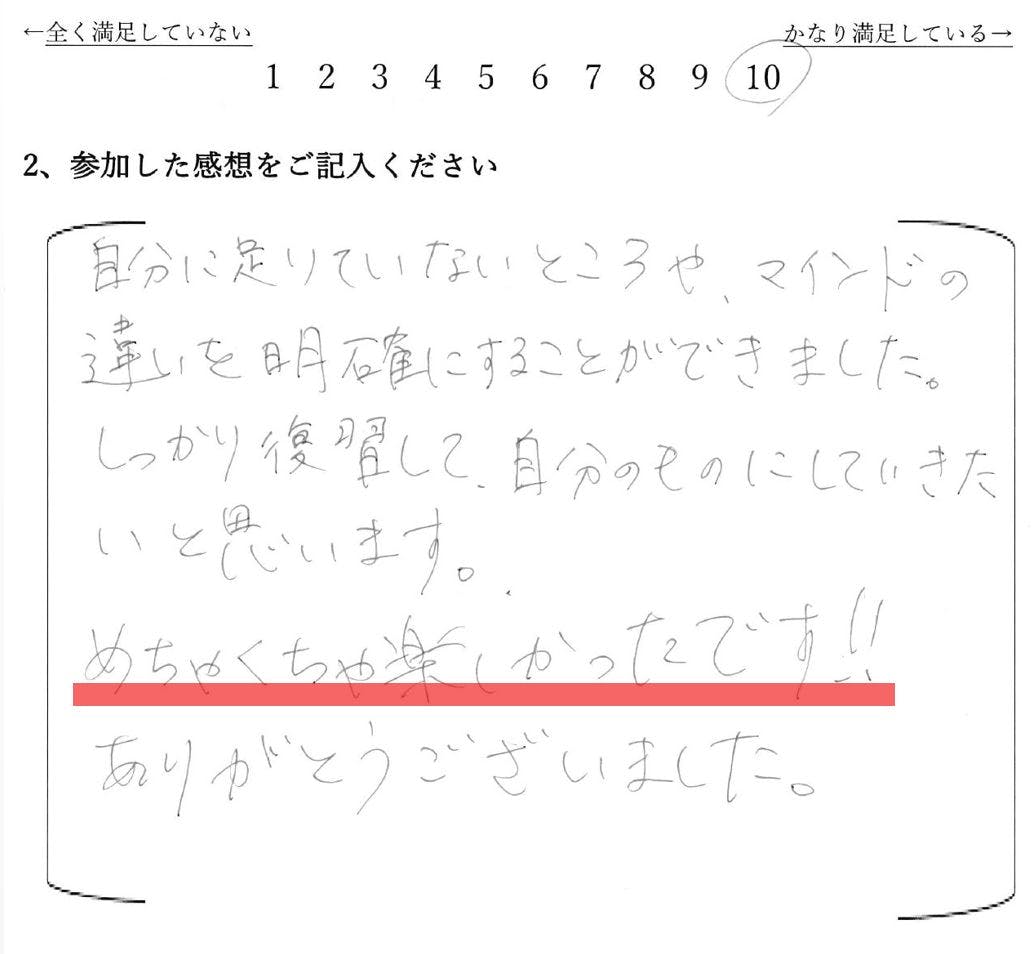 ←全く満足していない かなり満足している→
1 2 3 4 5 6 7 8 9 10
2、参加した感想をご記入ください
自分に足りていないところや、マインドの
違いを明確にすることができました。
しっかり復習して、自分のものにしていきた
いと思います。
めちゃくちゃ楽しかったです!!
ありがとうございました。